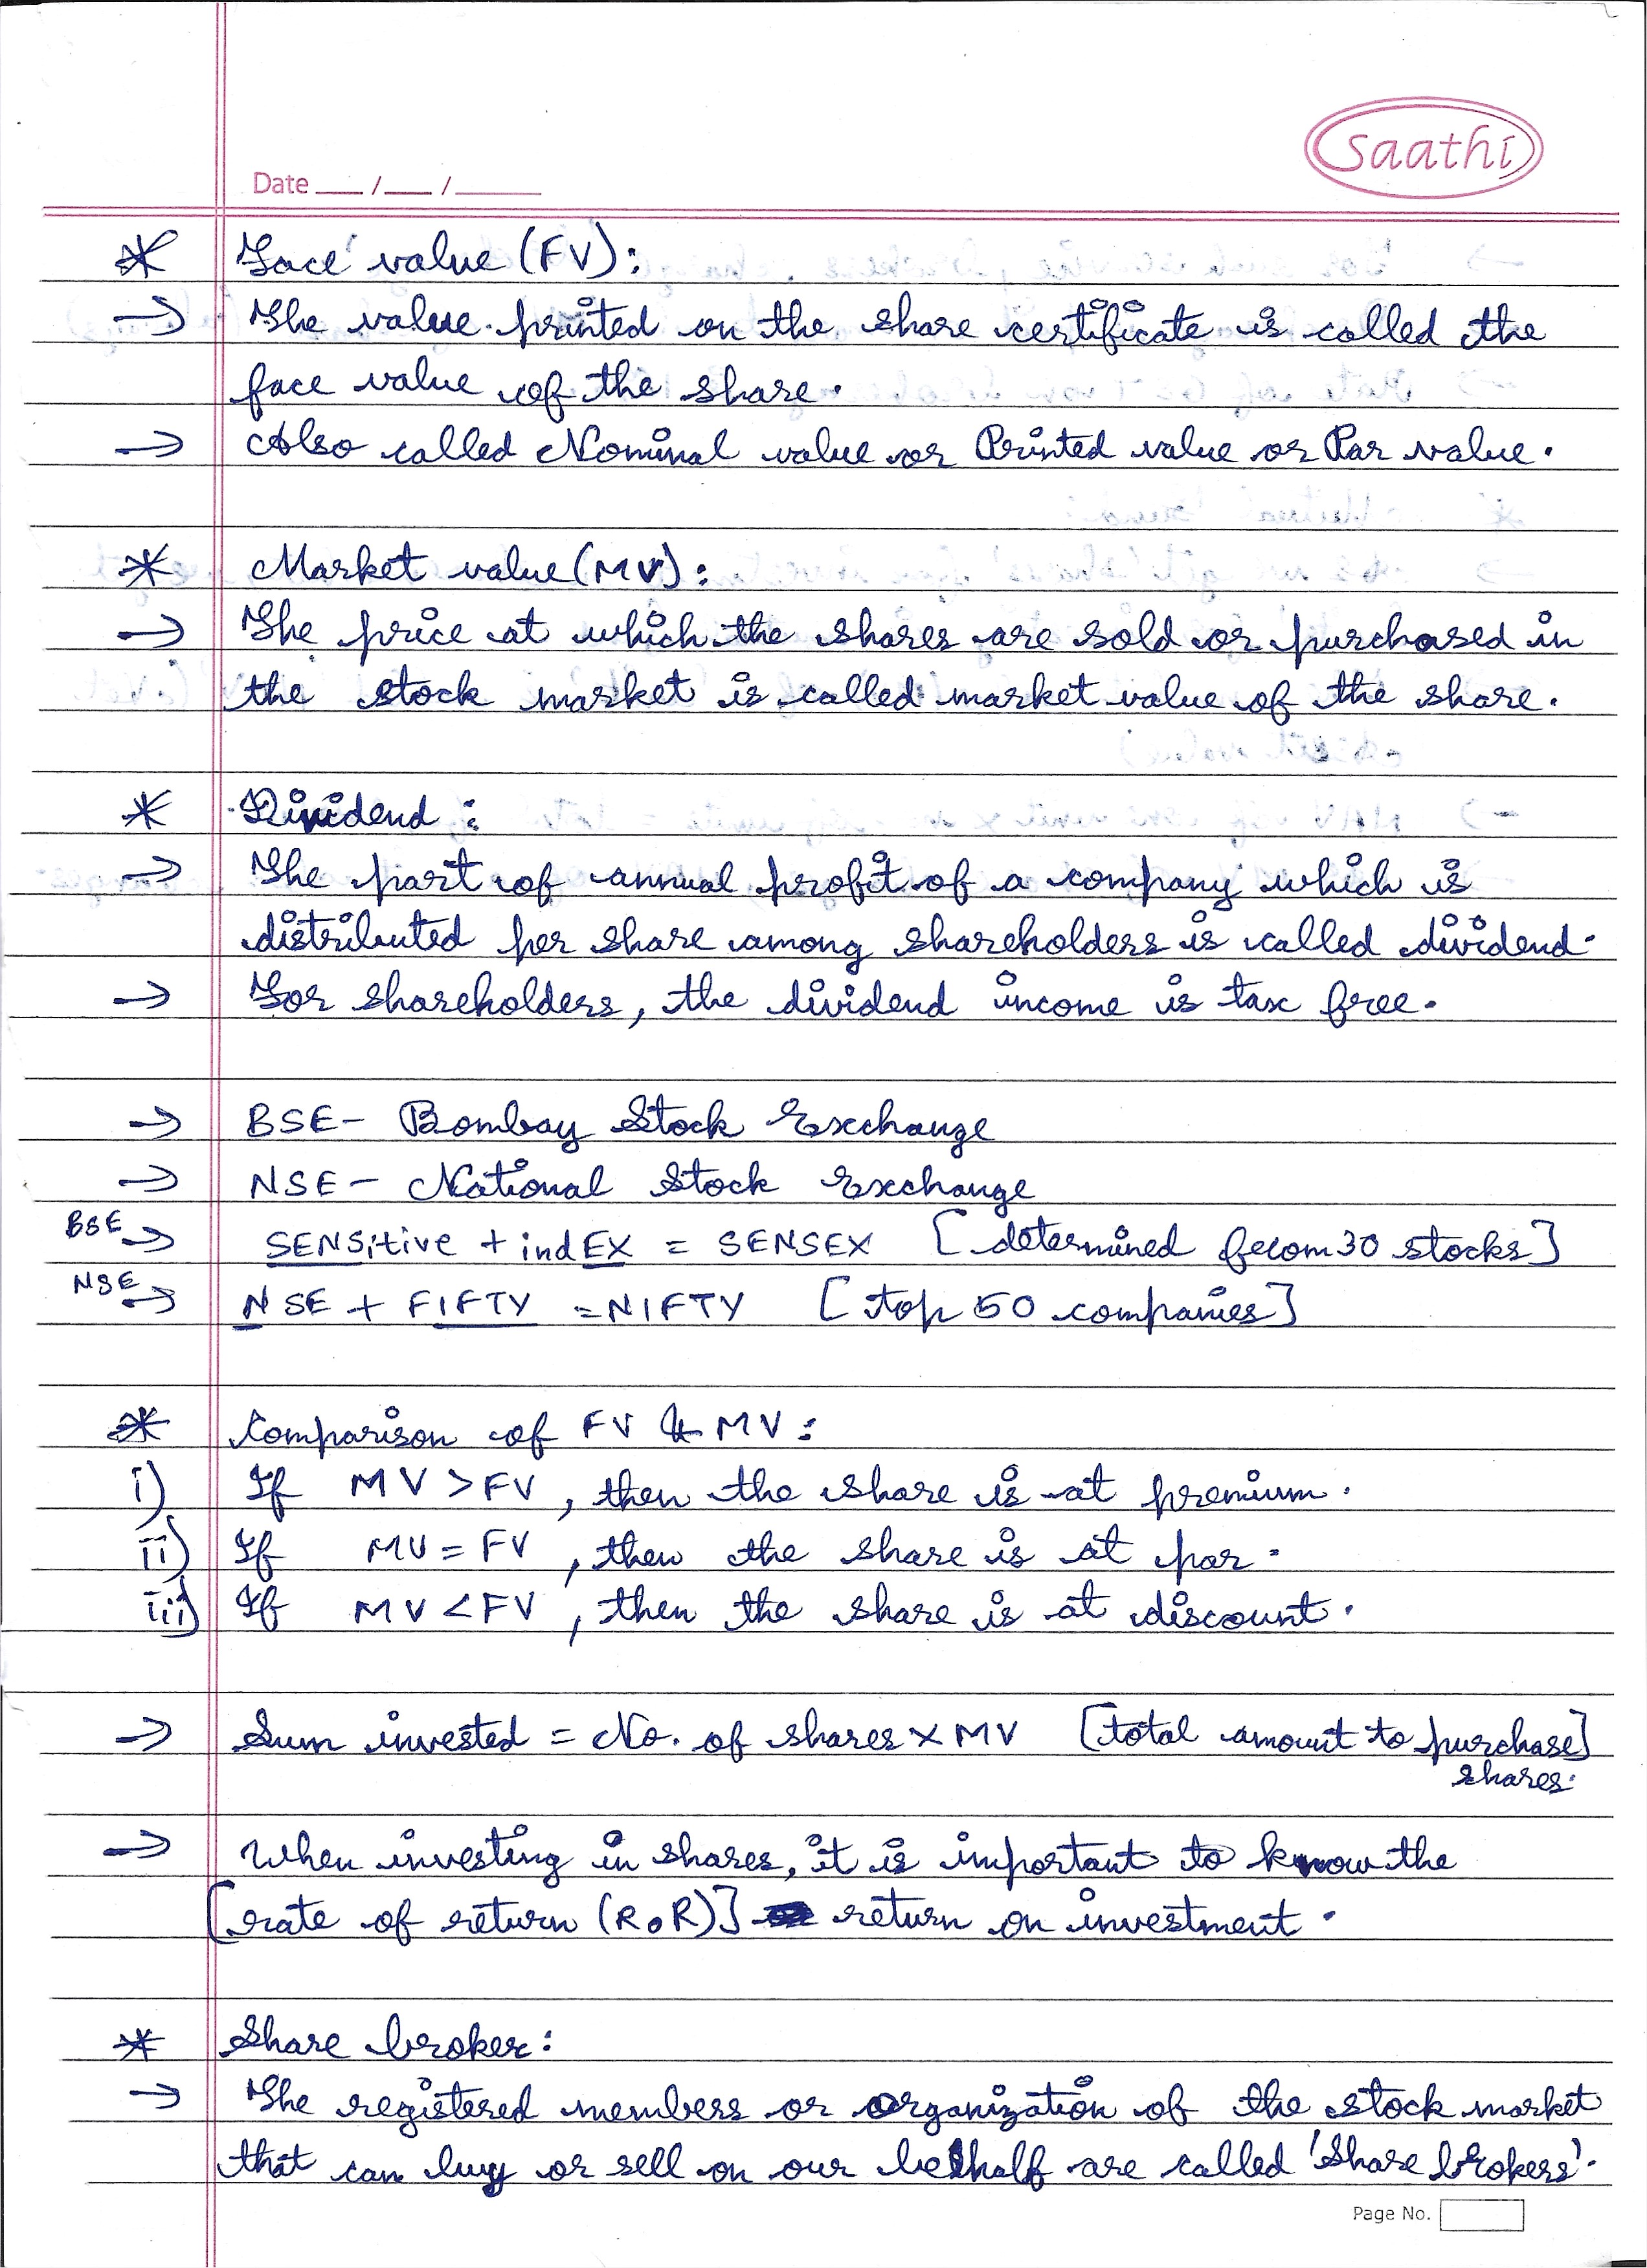 saathi
Date ___ /___ /______
* Face value (FV):
→ The value printed on the share certificate is called the
face value of the share.
→ Also called Nominal value or Printed value or Par value.
* Market value (MV):
→ The price at which the shares are sold or purchased in
the stock market is called market value of the share.
* Dividend :
→ The part of annual profit of a company which is
distributed per share among shareholders is called dividend.
→ For shareholders, the dividend income is tax free.
→ BSE - Bombay Stock Exchange
→ NSE - National Stock Exchange
BSE → SENSitive + indEX = SENSEX [determined from 30 stocks]
NSE → NSE + FIFTY = NIFTY [top 50 companies]
* Comparison of FV & MV :
i) If MV > FV, then the share is at premium.
ii) If MV = FV, then the share is at par.
iii) If MV < FV, then the share is at discount.
→ Sum invested = No. of shares × MV [total amount to purchase]
shares.
→ When investing in shares, it is important to know the
[rate of return (RoR)] return on investment.
* Share broker:
→ The registered members or organization of the stock market
that can buy or sell on our behalf are called 'Share brokers'.
Page No.